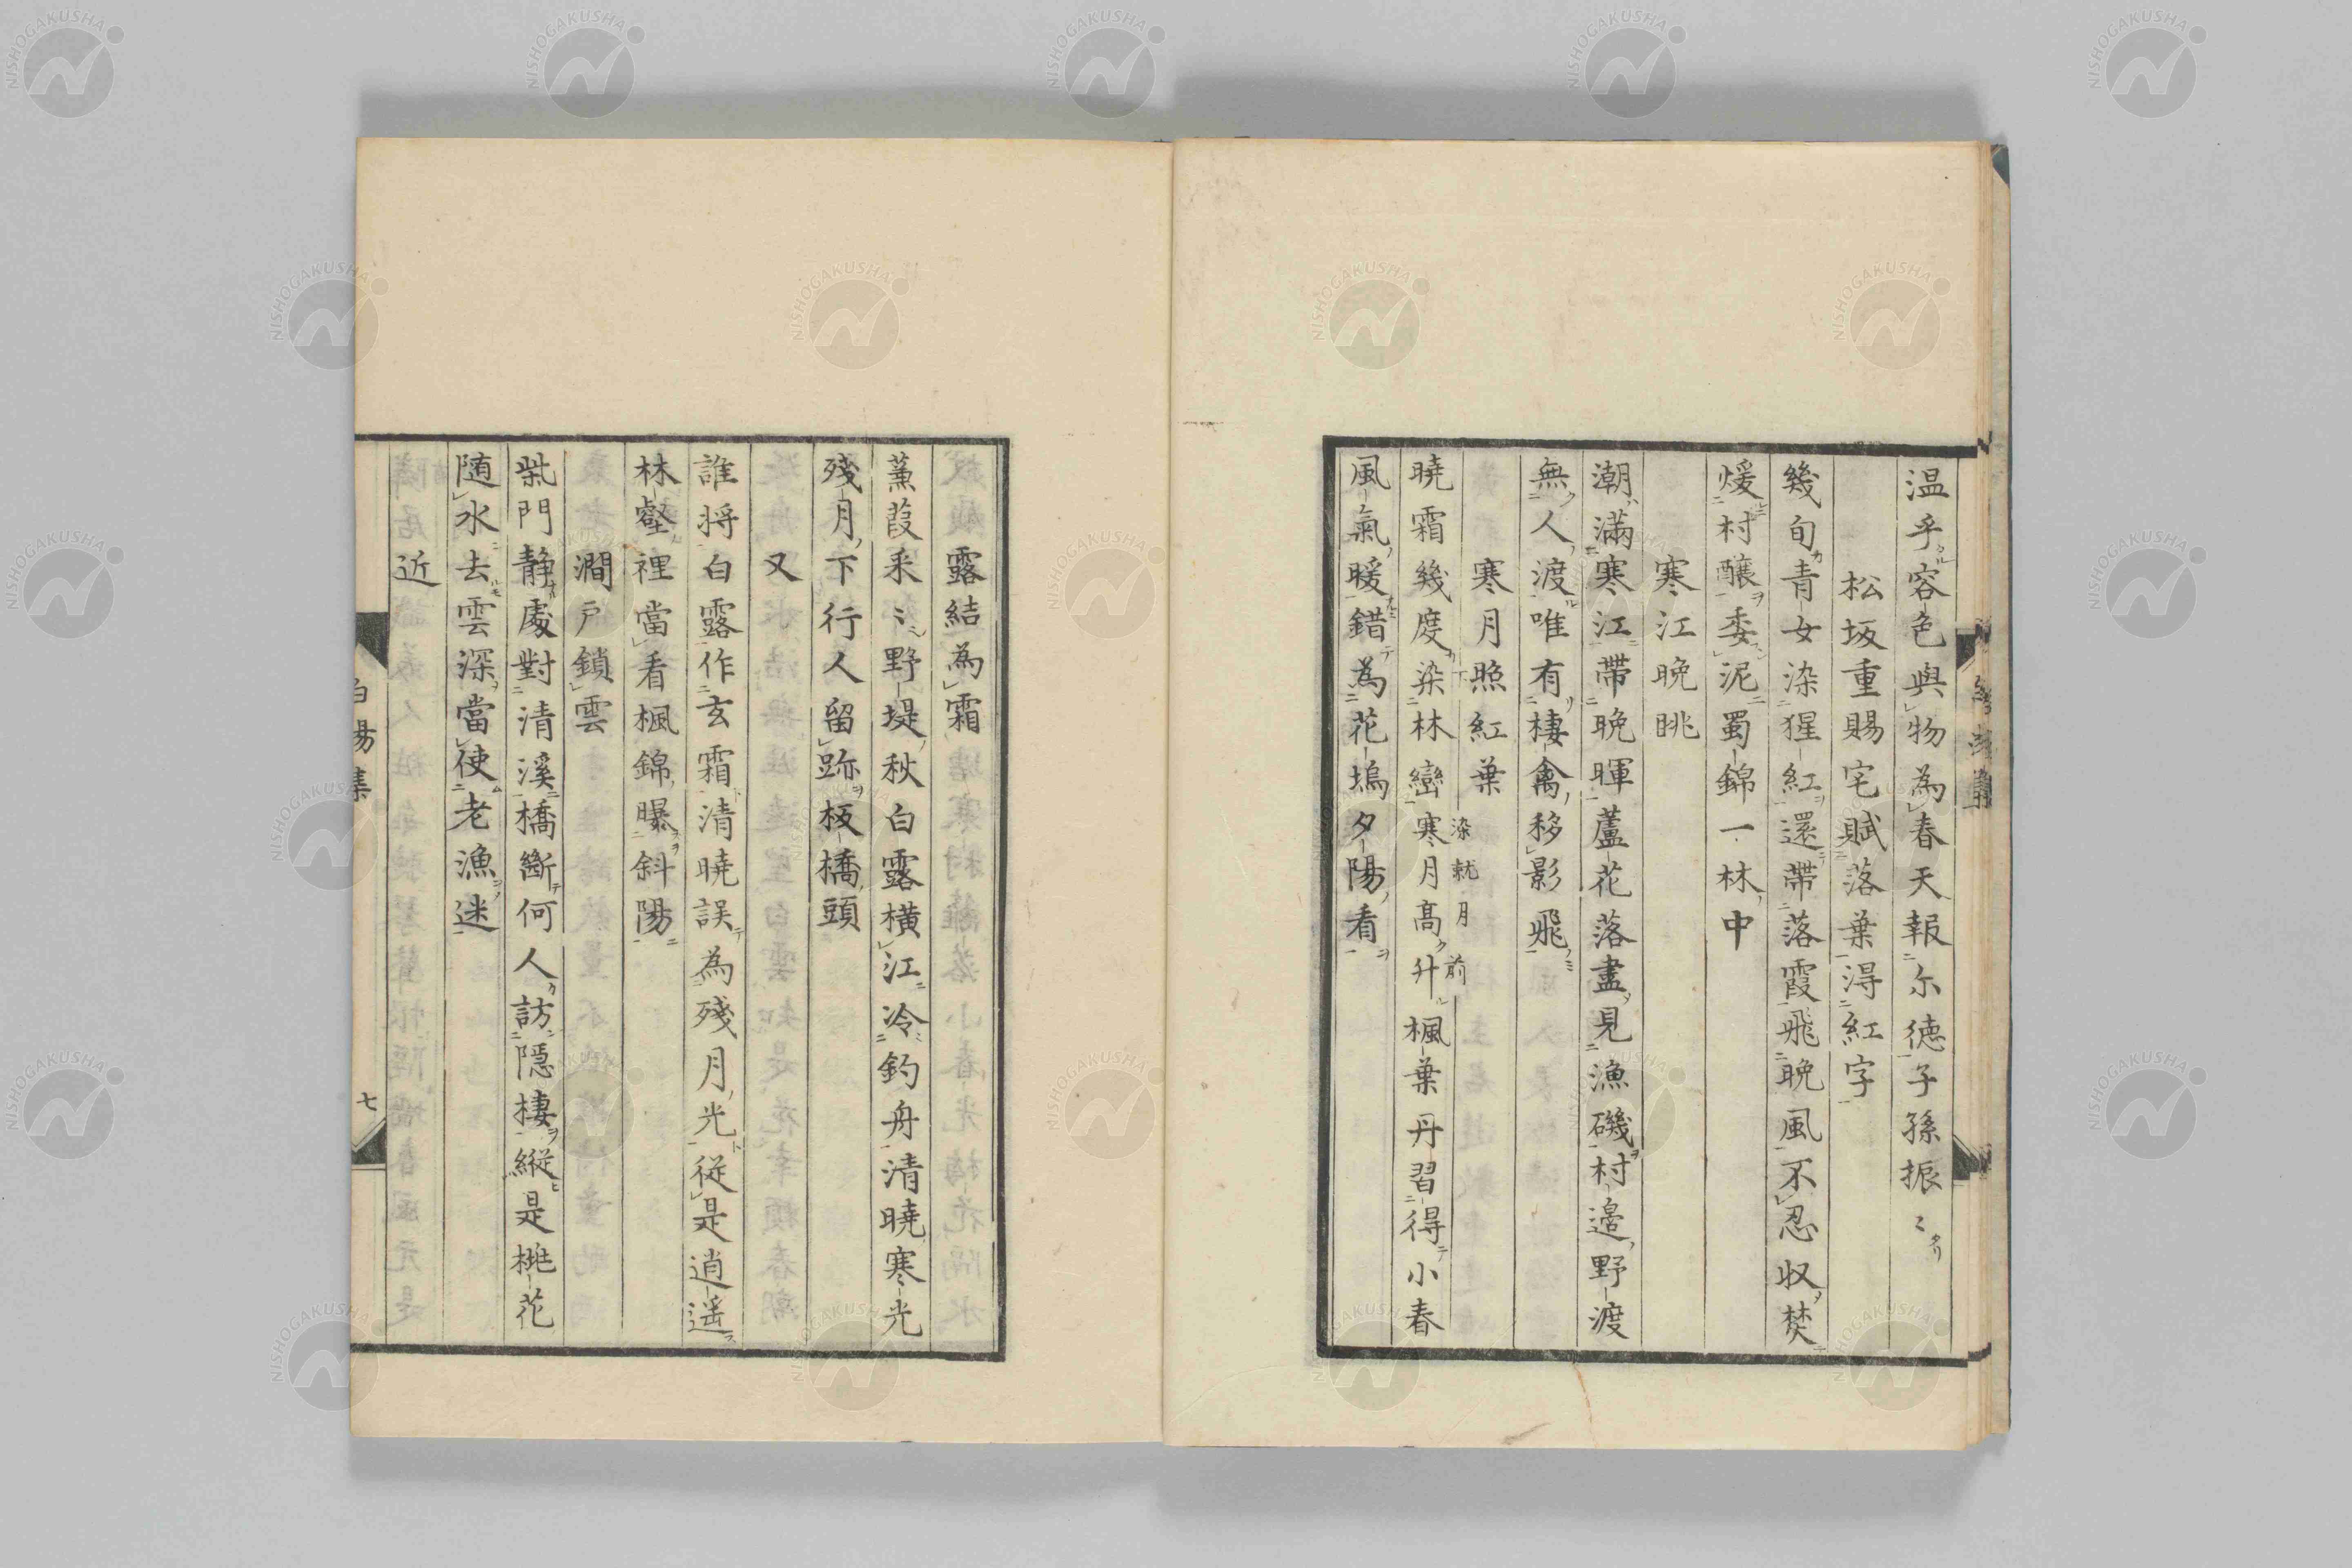 温乎容色與物為春天報尓徳子孫振〻
松坂重賜宅賦落葉得紅字
幾旬青女染猩紅還帶落霞飛晩風不忍収焚
煖村釀委泥蜀錦一林中
寒江晩眺
潮滿寒江帶晩暉蘆花落盡見漁磯村邊野渡
無人渡唯有棲禽移影飛
寒月照紅葉
染就月前
曉霜幾度染林巒寒月高升楓葉丹習得小春
風氣暖錯為花塢夕陽看
露結為霜
蒹葭采〻野堤秋白露橫江冷釣舟清曉寒光
殘月下行人留跡板橋頭
又
誰将白露作玄霜清曉誤為殘月光從是逍遥
林壑裡當看楓錦曝斜陽
澗戸鎖雲
柴門静處對清溪橋斷何人訪隠棲縦是桃花
随水去雲深當使老漁迷
近
白陽集
七
NISHOGAKUSHA